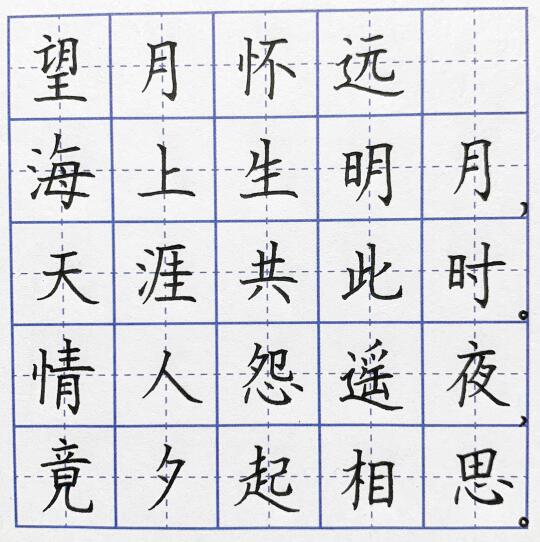 望月怀远
海上生明月，
天涯共此时。
情人怨遥夜，
竟夕起相思。